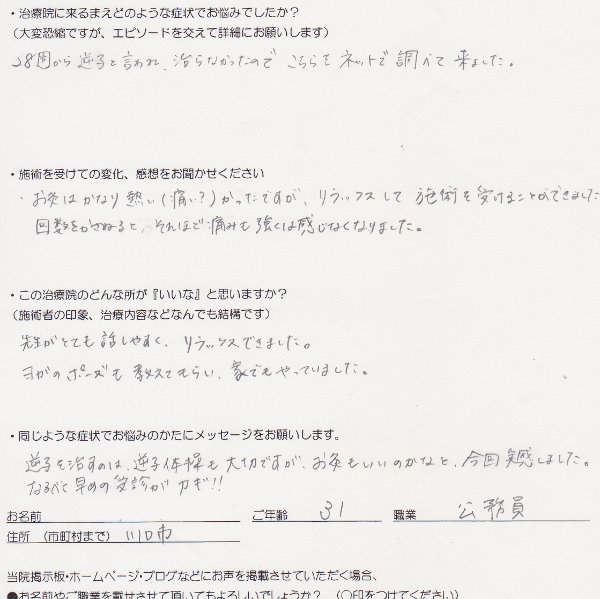 ・治療院に来るまえどのような症状でお悩みでしたか?
(大変恐縮ですが、エピソードを交えて詳細にお願いします)
28週から逆子と言われ、治らなかったので こちらをネットで調べて来ました。
・施術を受けての変化、感想をお聞かせください
・お灸はかなり熱い(痛い?)かったですが、リラックスして施術を受けることができました
回数をかさねると、それほど痛みも強くは感じなくなりました。
・この治療院のどんな所が『いいな』と思いますか?
(施術者の印象、治療内容などなんでも結構です)
先生がとても話しやすく、リラックスできました。
ヨガのポーズも教えてもらい、家でもやっていました。
・同じような症状でお悩みのかたにメッセージをお願いします。
逆子を治すのは、逆子体操も大切ですが、お灸もいいのかなと、今回実感しました。
なるべく早めの受診がカギ!!
お名前 ご年齢 31 職業 公務員
住所 (市町村まで) 川口市
当院掲示板・ホームページ・ブログなどにお声を掲載させていただく場合、
●お名前やご職業を載せさせて頂いてもよろしいでしょうか? (〇印をつけてください)